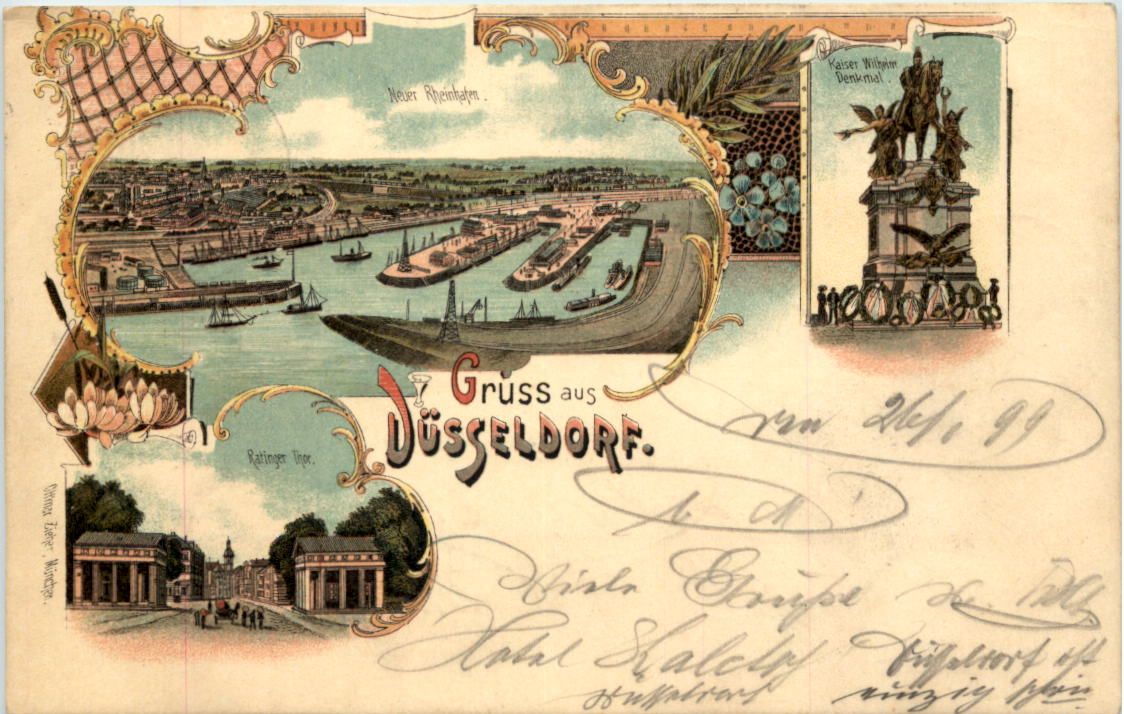 Neuer Rheinhafen.
Kaiser Wilhelm
Denkmal.
Gruss aus
Düsseldorf.
Ratinger Thor.
Ottmar Zieher, München.
99
Viele Grüße
Hotel
Düsseldorf
Düsseldorf ist
einzig schön